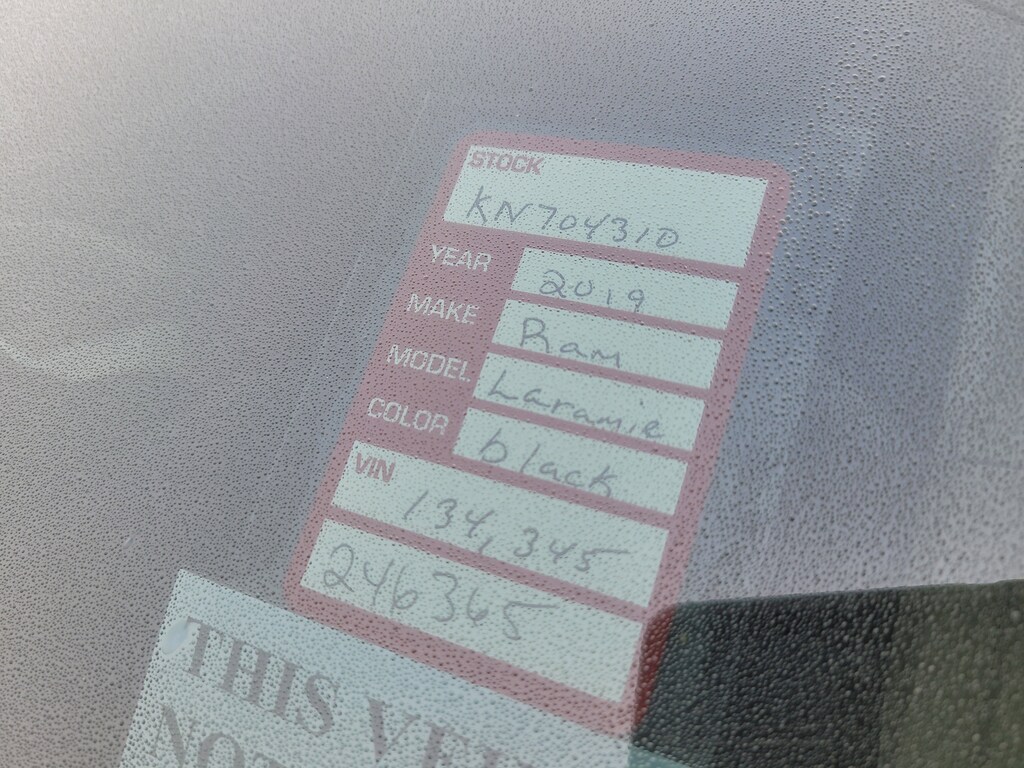 STOCK
KN704310
YEAR 2019
MAKE Ram
MODEL Laramie
COLOR black
VIN
134,345
246365
THIS VEH
NOT